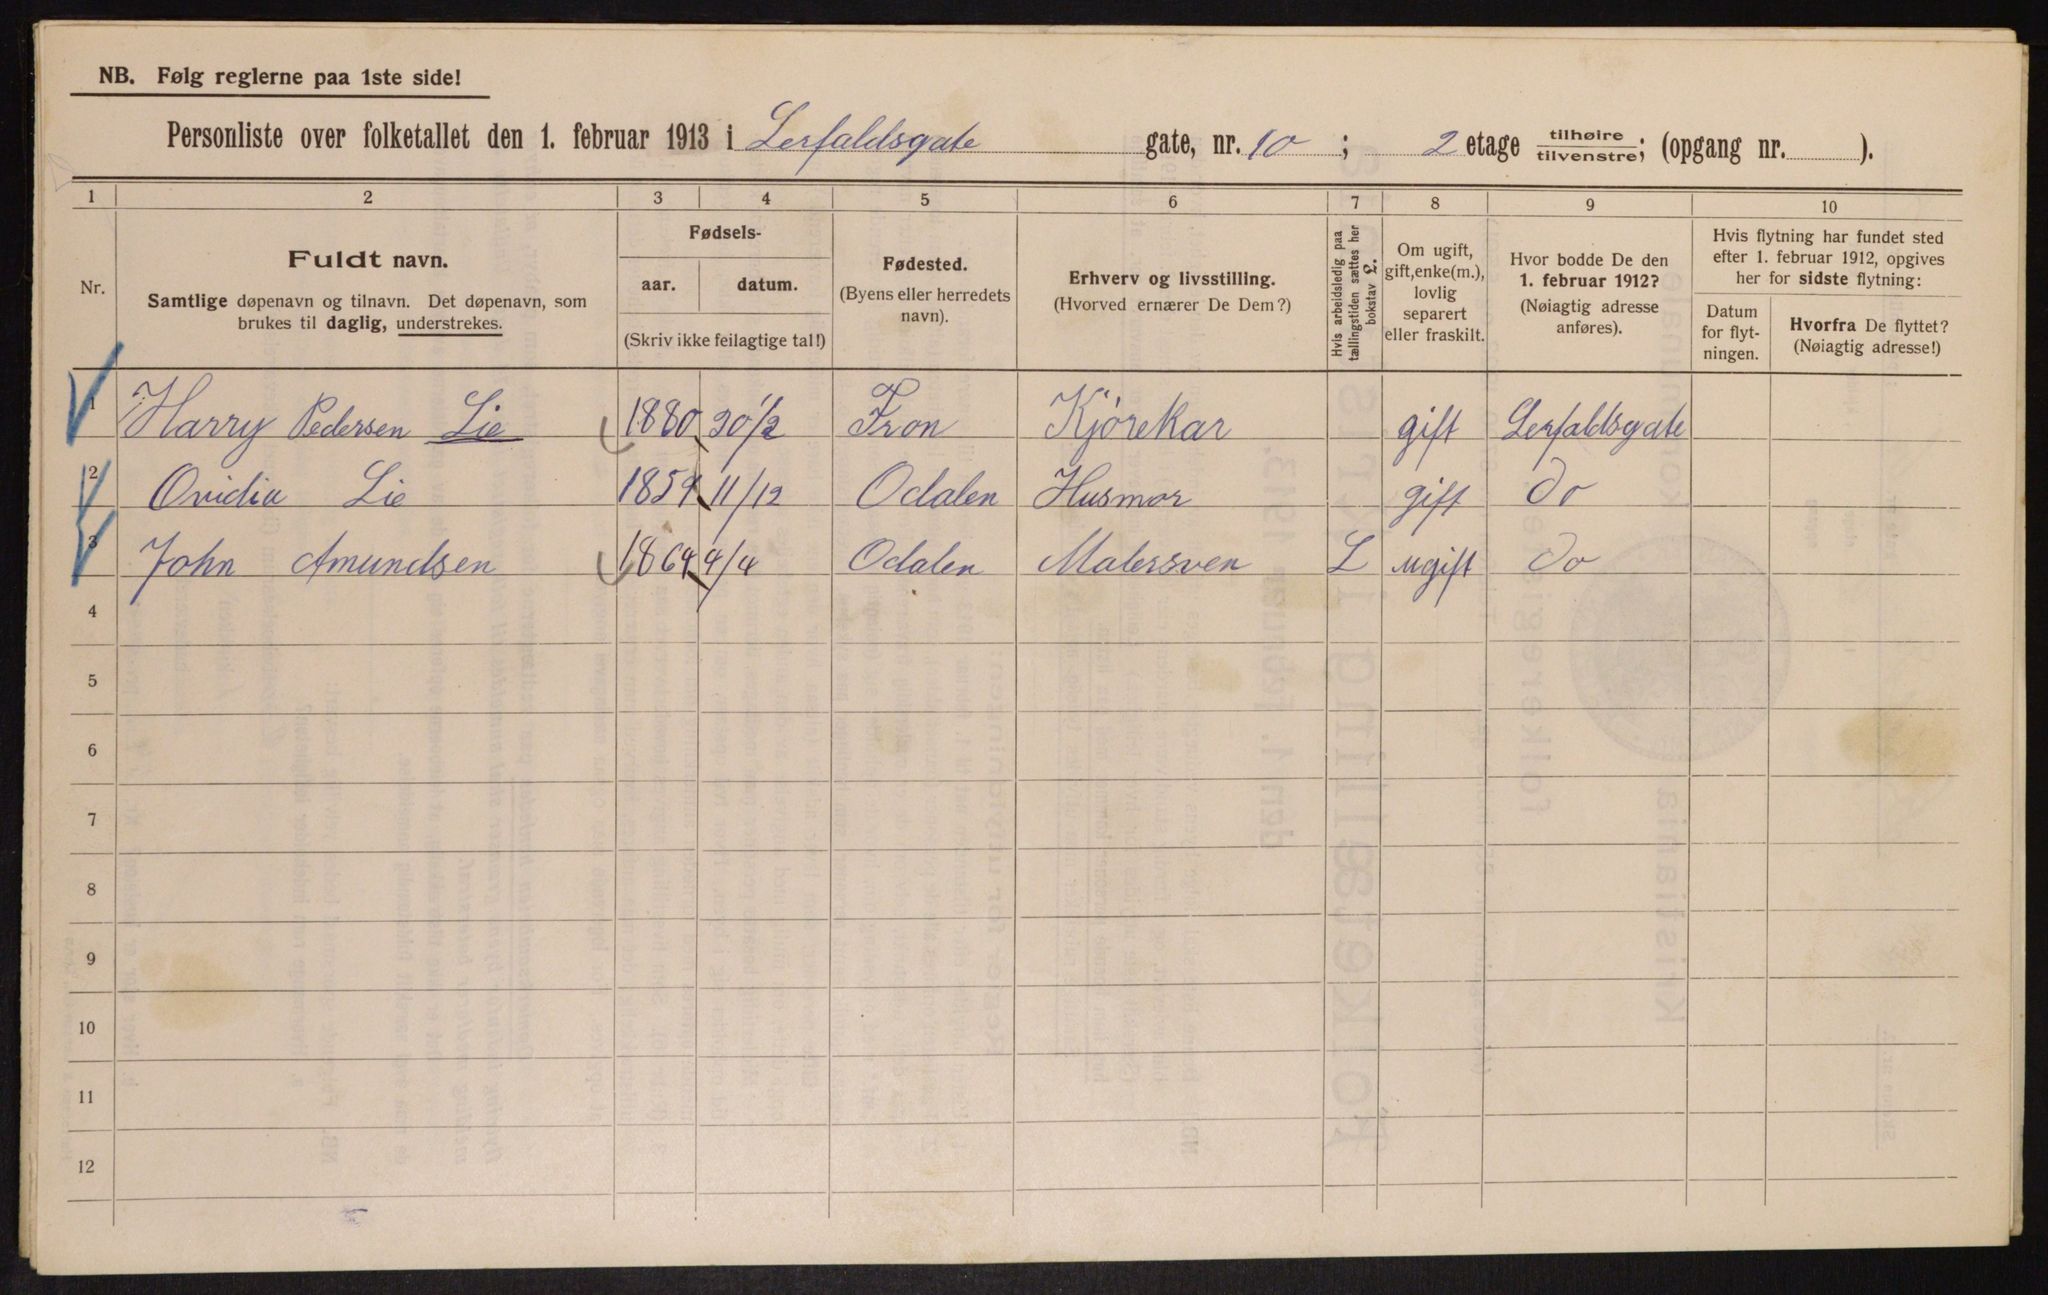 NB. Følg reglerne paa 1ste side!
Personliste over folketallet den 1. februar 1913 i Lerfaldsgate gate, nr. 10 ; 2 etage tilhøire/tilvenstre; (opgang nr. ).
1 2 3 4 5 6 7 8 9 10
Nr.
Fuldt navn.
Samtlige døpenavn og tilnavn. Det døpenavn, som
brukes til daglig, understrekes.
Fødsels-
aar. datum.
(Skriv ikke feilagtige tal!)
Fødested.
(Byens eller herredets
navn).
Erhverv og livsstilling.
(Hvorved ernærer De Dem?)
Hvis arbeidsledig paa
tællingstiden sættes her
bokstav L.
Om ugift,
gift, enke(m.),
lovlig
separert
eller fraskilt.
Hvor bodde De den
1. februar 1912?
(Nøiagtig adresse
anføres).
Hvis flytning har fundet sted
efter 1. februar 1912, opgives
her for sidste flytning:
Datum
for flyt-
ningen.
Hvorfra De flyttet?
(Nøiagtig adresse!)
1 Harry Pedersen Lie 1880 Fron Kjörekar gift Lerfaldsgate
2 Ovidia Lie 1859 11/12 Odalen Husmor gift do
3 John Amundsen 1864 4/4 Odalen Malersven L ugift do
4
5
6
7
8
9
10
11
12